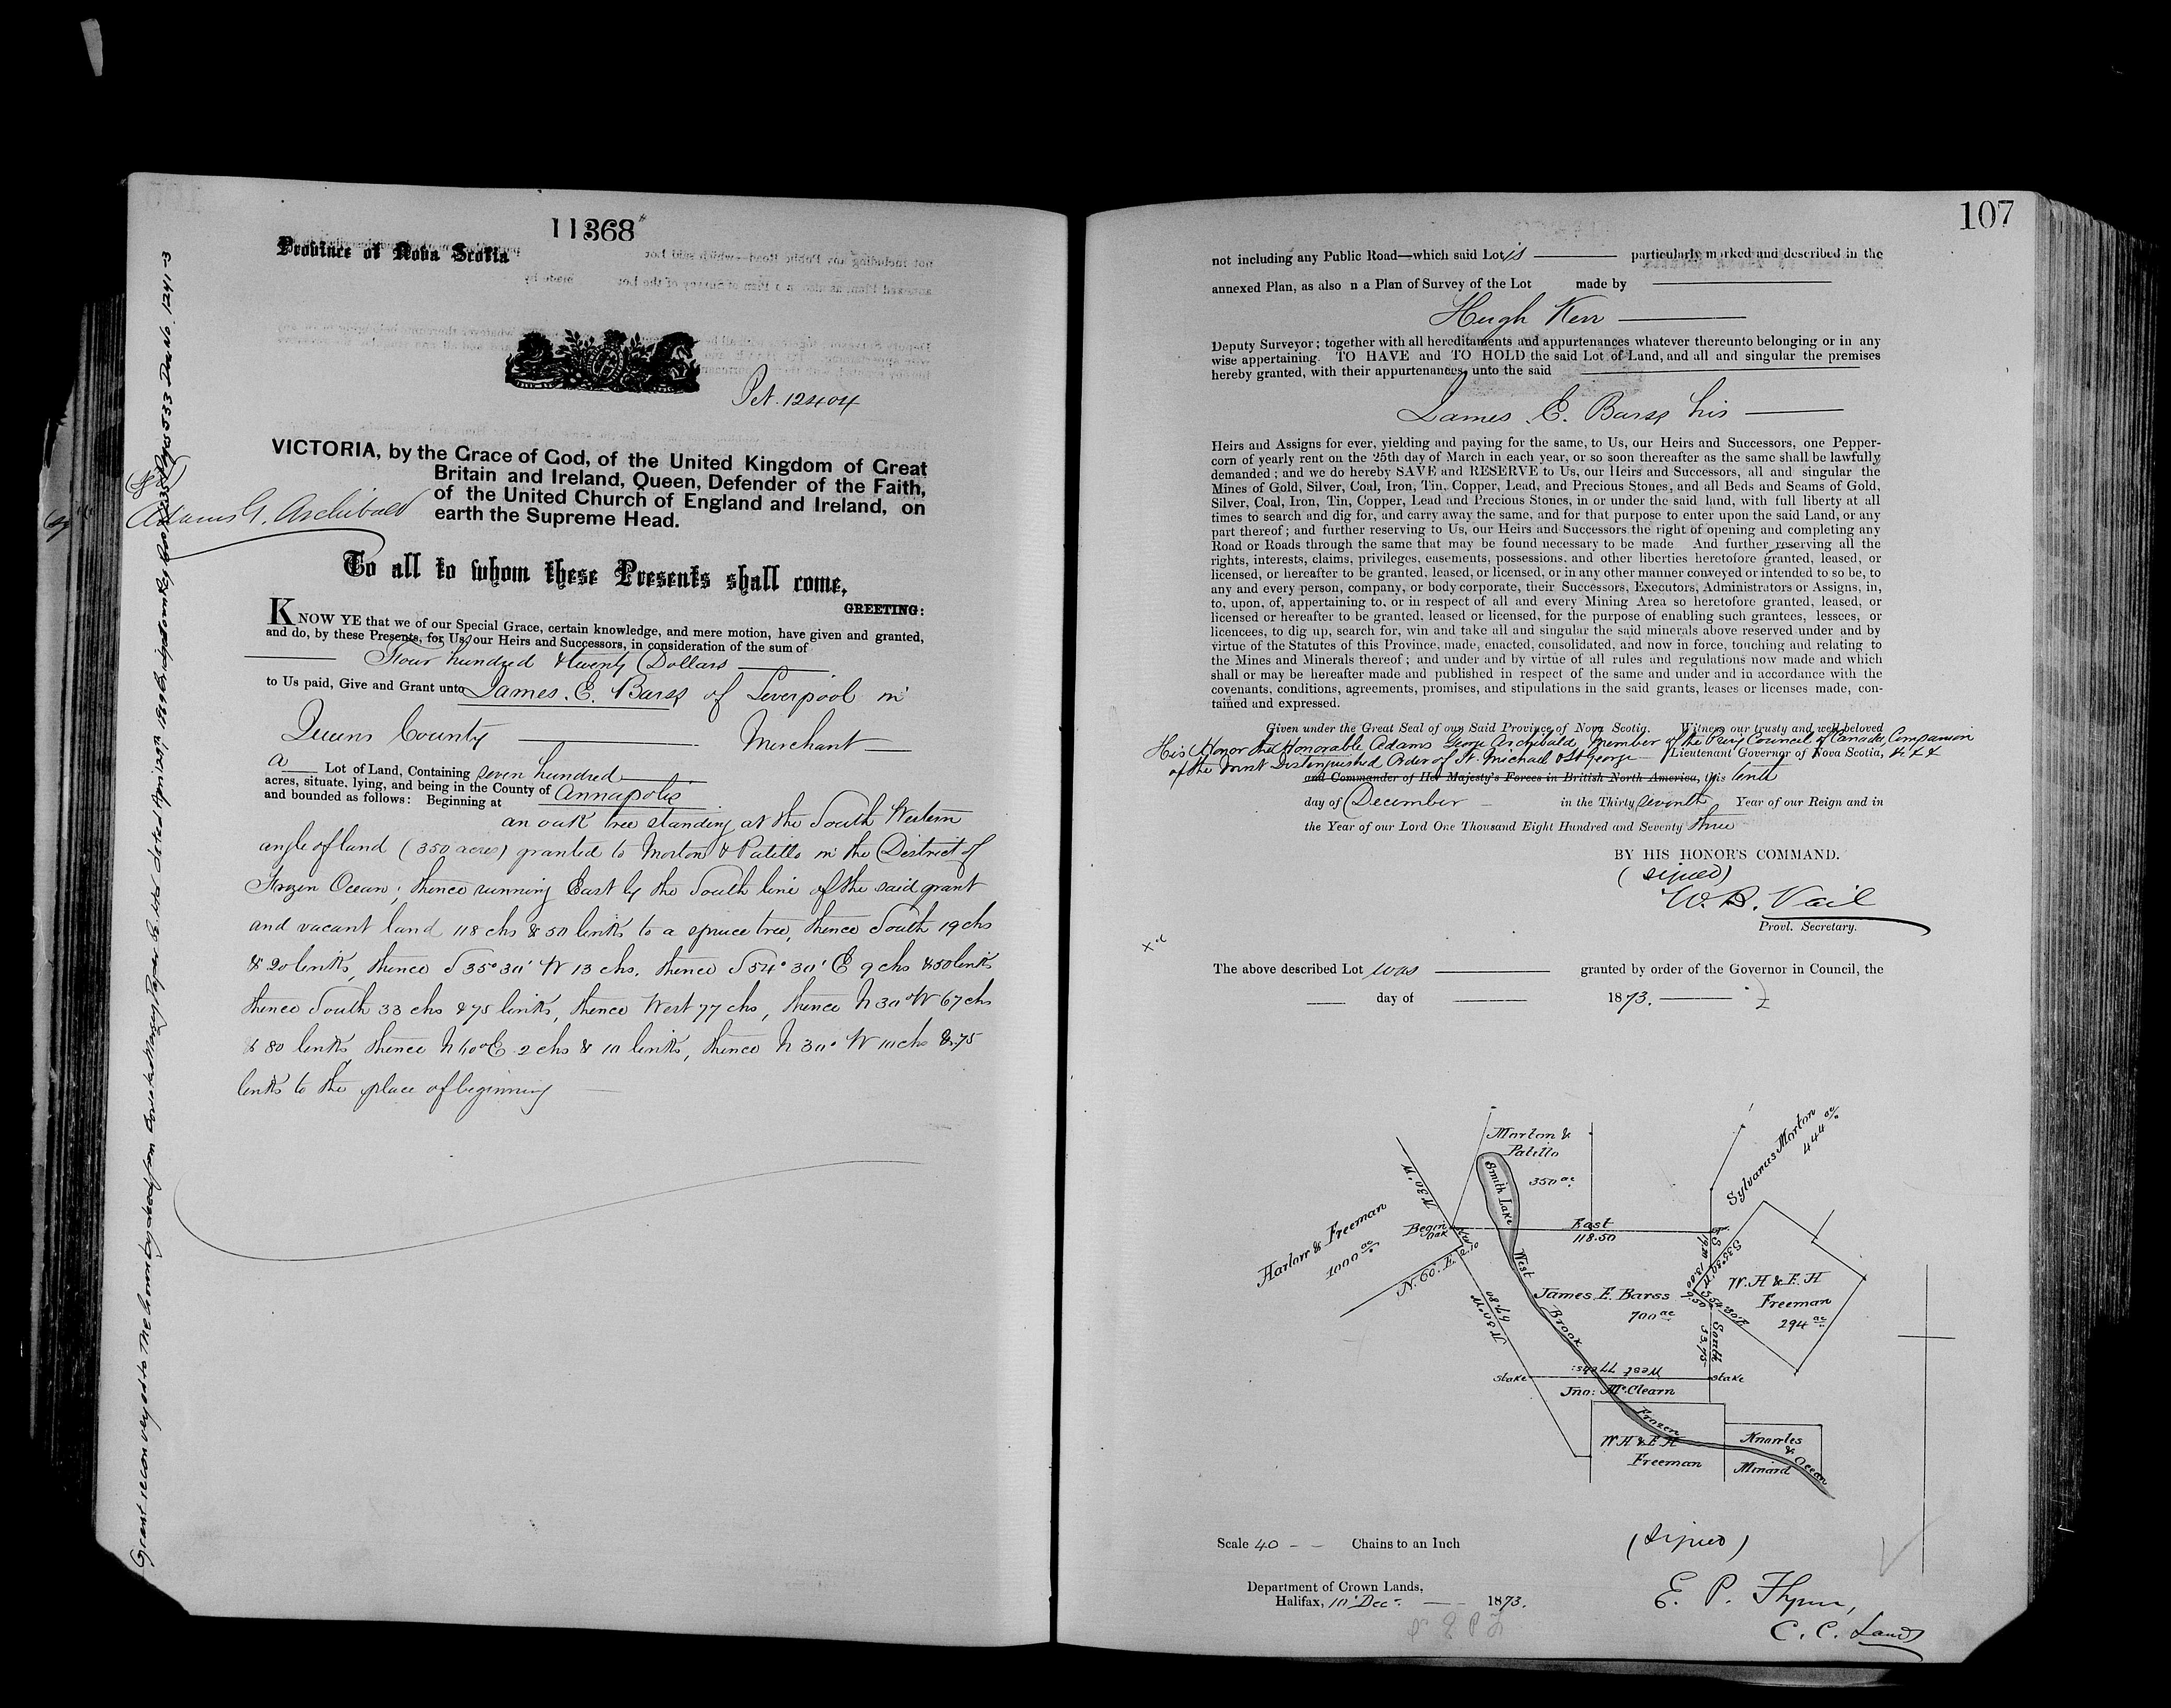 11368
Province of Nova Scotia
Pet. 12404
VICTORIA, by the Grace of God, of the United Kingdom of Great
Britain and Ireland, Queen, Defender of the Faith,
of the United Church of England and Ireland, on
earth the Supreme Head.
(Sgd)
Adams G. Archibald
To all to whom these Presents shall come,
GREETING:
KNOW YE that we of our Special Grace, certain knowledge, and mere motion, have given and granted,
and do, by these Presents, for Us, our Heirs and Successors, in consideration of the sum of
Four hundred & twenty Dollars
to Us paid, Give and Grant unto James. E. Barss of Liverpool in
Queens County Merchant
a Lot of Land, Containing seven hundred
acres, situate, lying, and being in the County of Annapolis
and bounded as follows: Beginning at
an oak tree standing at the South Western
angle of land (350 acres) granted to Morton & Patillo in the District of
Frozen Ocean; thence running East by the South line of the said grant
and vacant land 118 chs & 50 links to a spruce tree, thence South 19 chs
& 20 links, thence S 35° 30' W 13 chs, thence S 54° 30' E 9 chs & 50 links
thence South 33 chs & 75 links, thence West 77 chs, thence N 30° W 67 chs
& 80 links, thence N 60° E 2 chs & 10 links, thence N 30° W 10 chs & 75
links to the place of beginning
Grant reconveyed to The Crown by deed from Bowater Mersey Paper Co. Ltd. dated April 1969
107
not including any Public Road—which said Lot is particularly marked and described in the
annexed Plan, as also n a Plan of Survey of the Lot made by
Hugh Kerr
Deputy Surveyor; together with all hereditaments and appurtenances whatever thereunto belonging or in any
wise appertaining. TO HAVE and TO HOLD the said Lot of Land, and all and singular the premises
hereby granted, with their appurtenances, unto the said
James E. Barss his
Heirs and Assigns for ever, yielding and paying for the same, to Us, our Heirs and Successors, one Pepper-
corn of yearly rent on the 25th day of March in each year, or so soon thereafter as the same shall be lawfully
demanded; and we do hereby SAVE and RESERVE to Us, our Heirs and Successors, all and singular the
Mines of Gold, Silver, Coal, Iron, Tin, Copper, Lead, and Precious Stones, and all Beds and Seams of Gold,
Silver, Coal, Iron, Tin, Copper, Lead and Precious Stones, in or under the said land, with full liberty at all
times to search and dig for, and carry away the same, and for that purpose to enter upon the said Land, or any
part thereof; and further reserving to Us, our Heirs and Successors the right of opening and completing any
Road or Roads through the same that may be found necessary to be made And further reserving all the
rights, interests, claims, privileges, easements, possessions, and other liberties heretofore granted, leased, or
licensed, or hereafter to be granted, leased, or licensed, or in any other manner conveyed or intended to so be, to
any and every person, company, or body corporate, their Successors, Executors, Administrators or Assigns, in,
to, upon, of, appertaining to, or in respect of all and every Mining Area so heretofore granted, leased, or
licensed or hereafter to be granted, leased or licensed, for the purpose of enabling such grantees, lessees, or
licencees, to dig up, search for, win and take all and singular the said minerals above reserved under and by
virtue of the Statutes of this Province, made, enacted, consolidated, and now in force, touching and relating to
the Mines and Minerals thereof; and under and by virtue of all rules and regulations now made and which
shall or may be hereafter made and published in respect of the same and under and in accordance with the
covenants, conditions, agreements, promises, and stipulations in the said grants, leases or licenses made, con-
tained and expressed.
Given under the Great Seal of our Said Province of Nova Scotia. Witness our trusty and well beloved
His Honor the Honorable Adams George Archibald, Member of the Privy Council of Canada, Companion
of the Most Distinguished Order of St. Michael & St George Lieutenant Governor of Nova Scotia, &c &c &c
and Commander of Her Majesty's Forces in British North America, this tenth
day of December in the Thirty seventh Year of our Reign and in
the Year of our Lord One Thousand Eight Hundred and Seventy three
BY HIS HONOR'S COMMAND.
(signed)
W. B. Vail
Provl. Secretary.
The above described Lot was granted by order of the Governor in Council, the
day of 1873.
Morton &
Patillo
350 ac.
Smith Lake
Sylvanus Morton
444 ac
Harlow & Freeman
1000 ac
N 30. W
Begin
Oak
N. 60. E.
2.10
East
118.50
19.20
S 35° 30' W
13.00
S 54. 30 E
9.50
W. H & E. H
Freeman
294 ac
James E. Barss
700 ac
West Brook
67.80
N 30 W
South
33.75
West 77 chs:
Stake
Stake
Jno: McClearn
Frozen Ocean
W H & E H
Freeman
Knowles
&
Minard
Scale 40 Chains to an Inch
(signed)
Department of Crown Lands,
Halifax, 10' Dec. 1873.
E. P. Flynn,
C. C. Lands